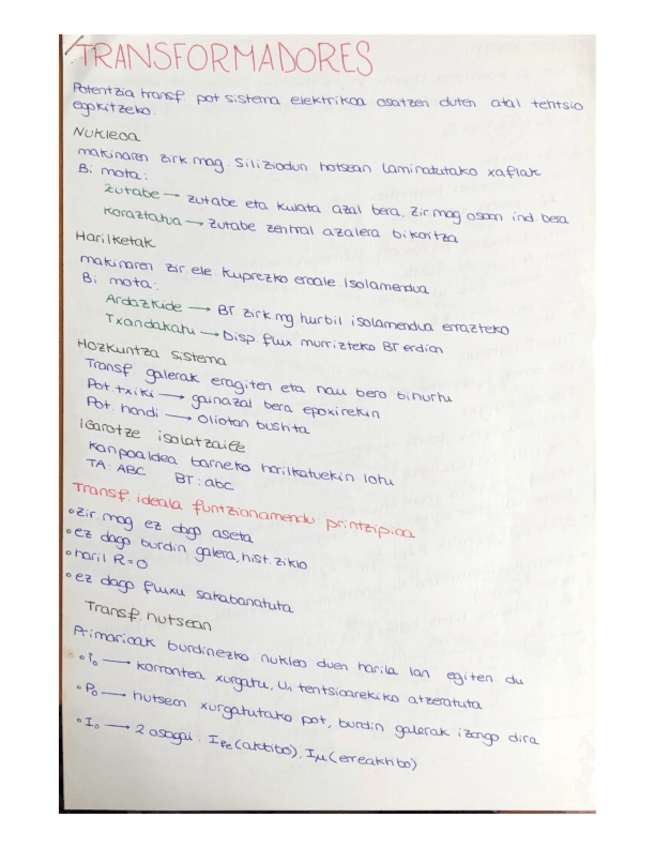 TRANSFORMADORES
Potentzia transf. pot sistema elektrikoa osatzen duten atal tentsio
egokitzeko.
Nukleoa
makinaren zirk mag. Siliziodun hotsean laminatutako xaflak
Bi mota:
Zutabe → zutabe eta kulata azal bera, zir.mag osoan ind bera
Koraztatua → zutabe zentral azalera bikoitza
Harilketak
makinaren zir ele. Kuprezko eroale. Isolamendua
Bi mota:
Ardazkide → BT zirk mg hurbil isolamendua errazteko
Txandakatu → Disp. flux murrizteko BT erdian
Hozkuntza sistema
Transf. galerak eragiten eta hau bero bihurtu
Pot. txiki → gainazal bera epoxirekin
Pot. handi → Oliotan bushita
igarotze isolatzaile
Kanpoaldea barneko harilkatuekin lotu
TA: ABC BT: abc
Transf. ideala funtzionamendu printzipioa
•zir. mag ez dago aseta
•ez dago burdin galera, hist. ziklo
•haril R=0
•ez dago fluxu sakabanatuta
Transf. hutsean
Primarioak burdinezko nukleo duen harila lan egiten du
•I₀ → korrontea xurgatu, U₁ tentsioarekiko atzeratuta
•P₀ → hutsean xurgatutako pot, burdin galerak izango dira
•I₀ → 2 osagai. I_Fe (aktibo), I_μ (erreaktibo)